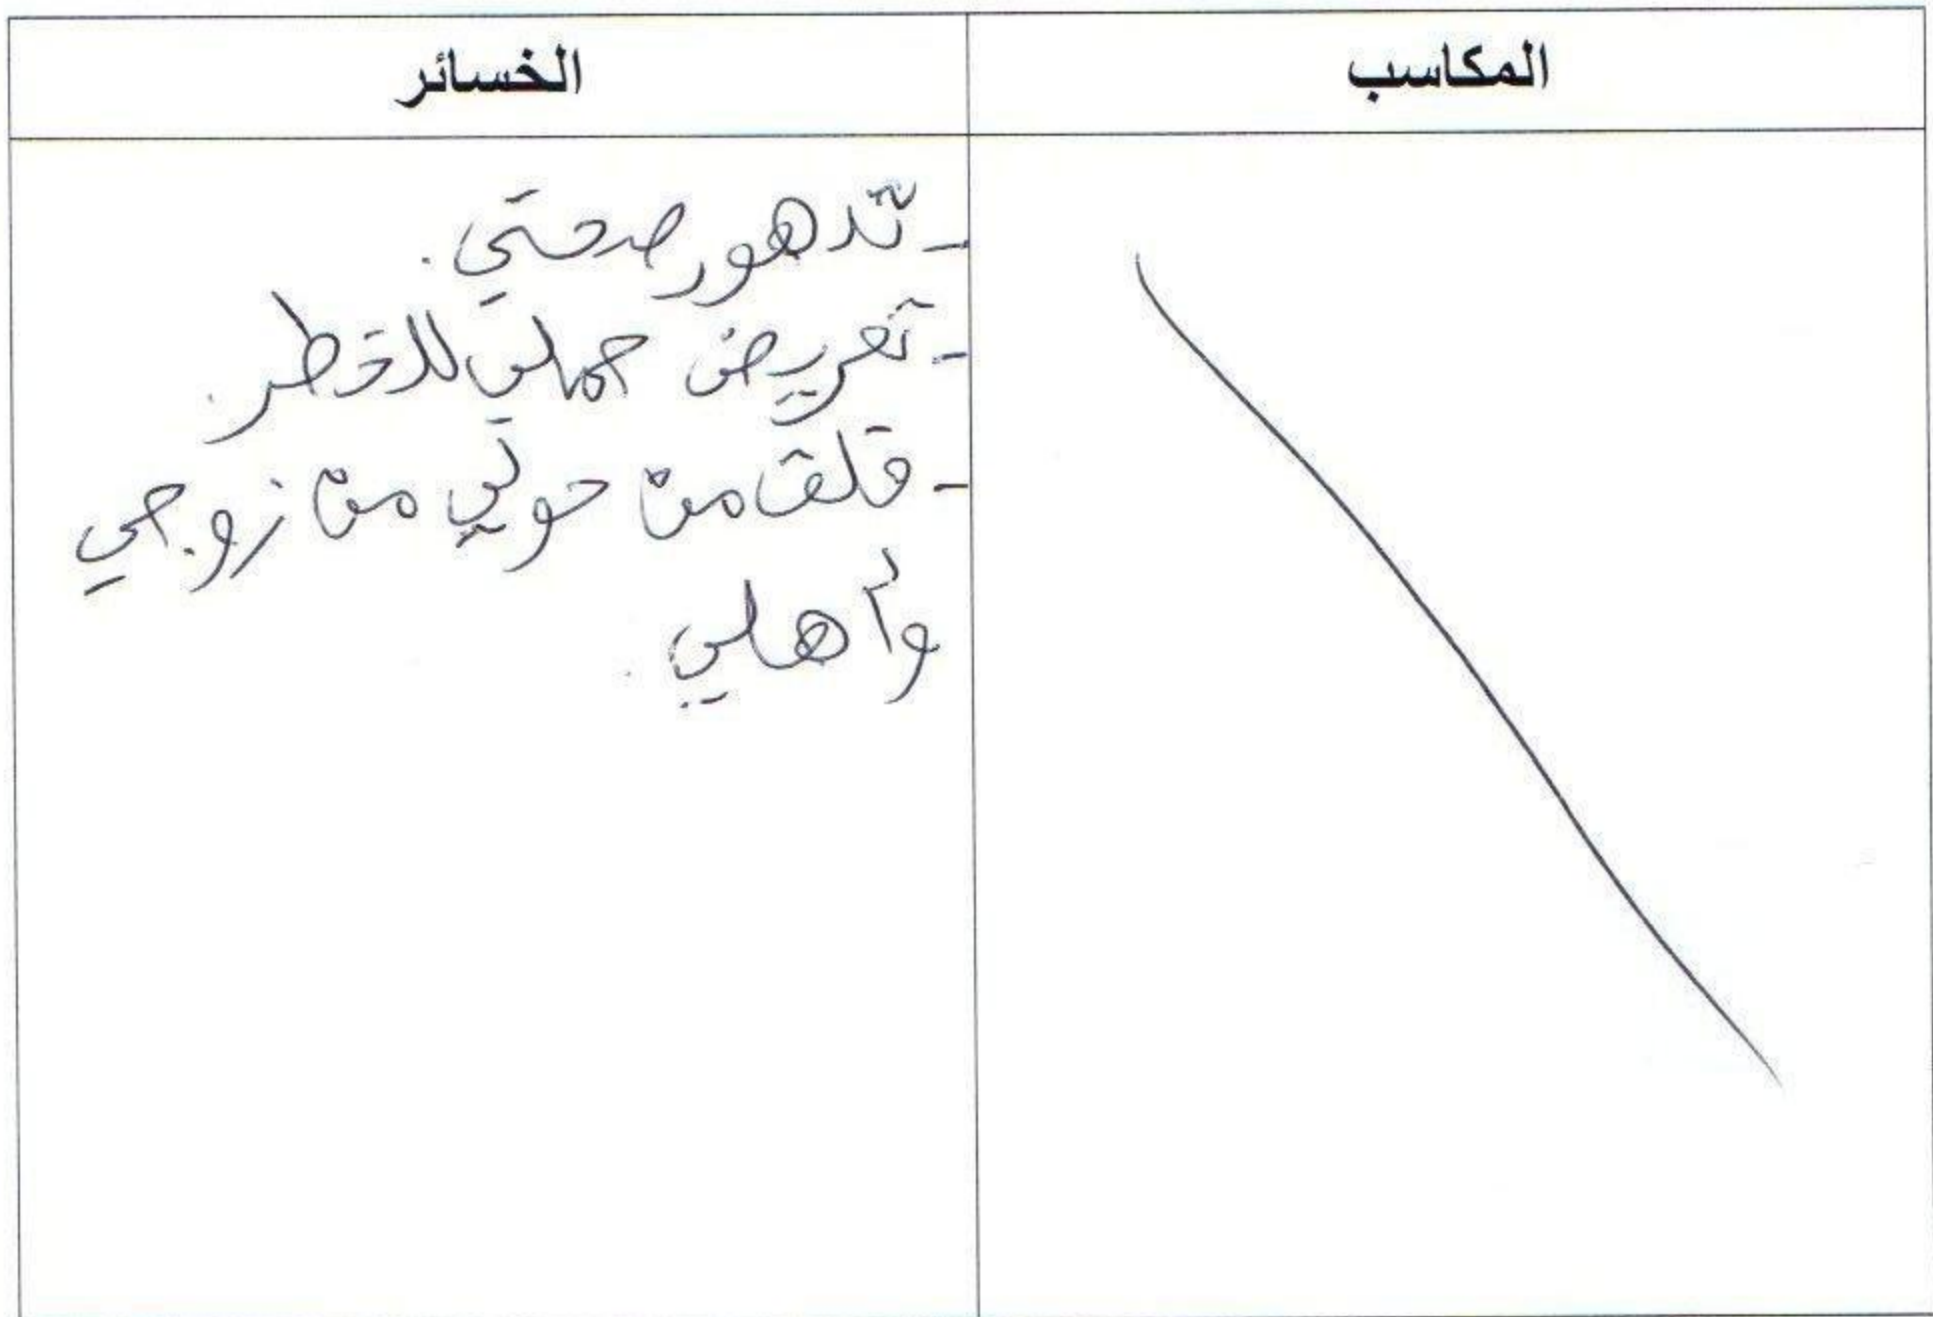 المكاسب
الخسائر
- تدهور صحتي.
- تعريض حملي للخطر.
- قلق من حولي من زوجي
وأهلي.